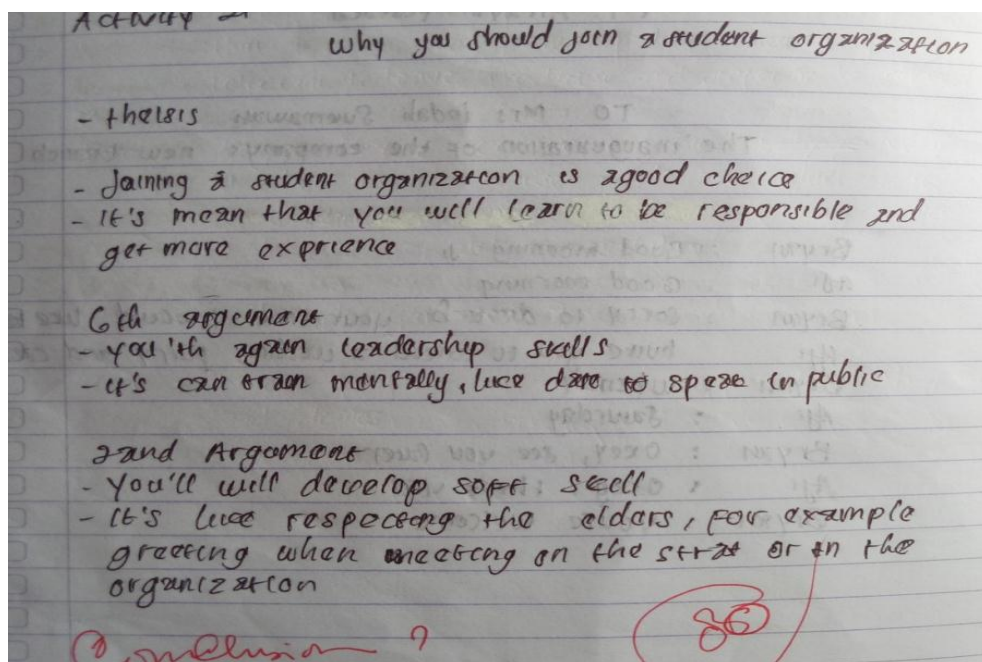 Activity 2
Why you should join a student organization
- thesis
- Joining a student organization is a good choice
- It's mean that you will learn to be responsible and
get more exprience
6th argument
- you'th again leadership skills
- it's can train mentally, like dare to speak in public
2and Argument
- You'll will develop soft skill
- It's like respecting the elders, for example
greeting when meeting on the strat or in the
organization
Conclusion ?
86